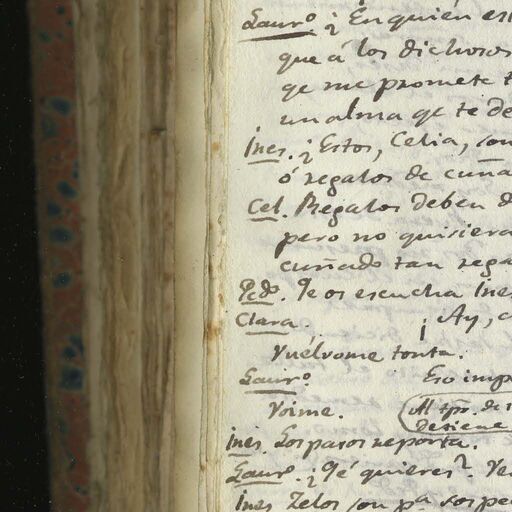 Laur.º ¿En quién es
que á los dichosos
qe me promete t
un alma qe te de
Ines. ¿Estos, Celia, son
ó regalos de cuña
Cel. Regalos deben d
pero no quisiera
cuñado tan rega
Pedº. Qe os escucha Ines
Clara. ¡Ay, c
Vuélvome tonta.
Laurº Eso imp
Voime. (Al
Detiene
Ines. Los pasos reporta.
Laurº. ¿Qé quieres? Ve
Ines Zelos son pª sospe